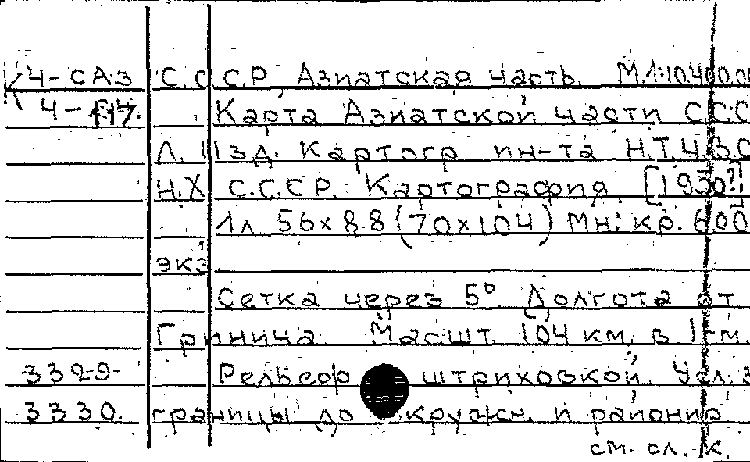 Ч-САЗ С.С.С.Р. Азиатская часть. М.1:10.400.00
Ч- Карта Азиатской части ССС
Л. Изд. Картогр. ин-та Н.Т.У. В.С.
Н.Х. С.С.С.Р. Картография [1930?]
1 л. 56x88 (70x104) Мн. кр. 600
экз.
Сетка через 5°. Долгота от
Гринича. Масшт. 104 км. в 1 см.
3329- Рельеф штриховкой. Усл. з
3330. границы до окружн. и районир
см. сл. к.